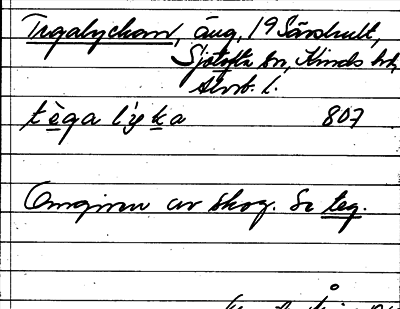 Tegalyckan, äng, 19 Särshult,
Sjötofta sn, Kinds hd,
Älvsb. l.
tèga lýka 807
Omgiven av skog. Se teg.